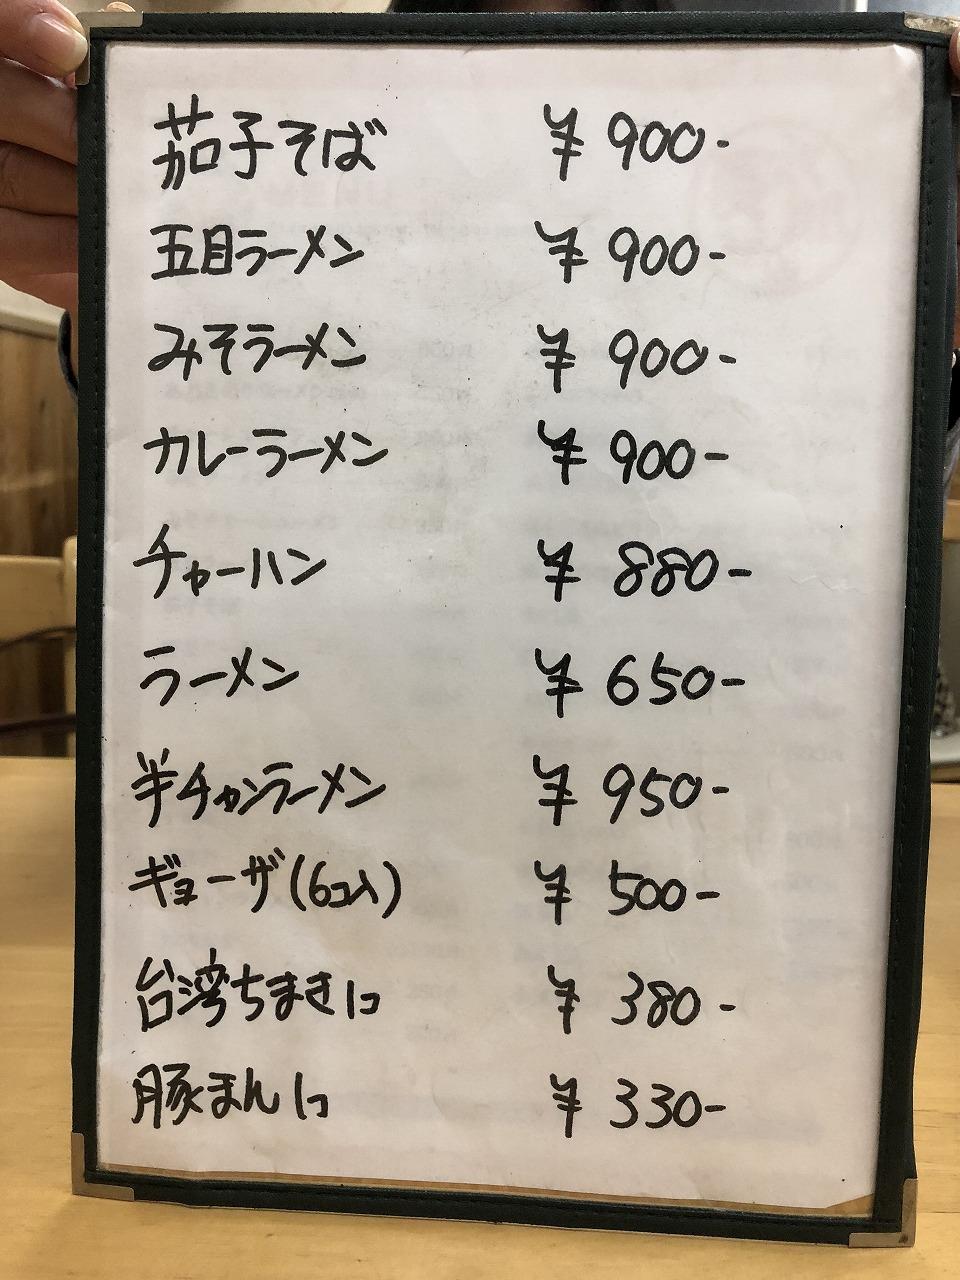 茄子そば ¥900-
五目ラーメン ¥900-
みそラーメン ¥900-
カレーラーメン ¥900-
チャーハン ¥880-
ラーメン ¥650-
半チャンラーメン ¥950-
ギョーザ(6コ入) ¥500-
台湾ちまき1コ ¥380-
豚まん1コ ¥330-